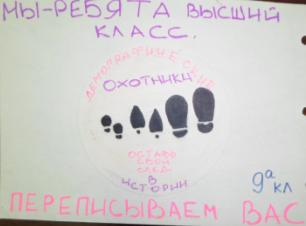 МЫ-РЕБЯТА ВЫСШИЙ
КЛАСС.
ДЕМОГРАФИЧЕСКИЕ
ОХОТНИКИ
ОСТАВЬ
СВОЙ
СЛЕД
В
ИСТОРИИ
9а
КЛ
ПЕРЕПИСЫВАЕМ ВАС